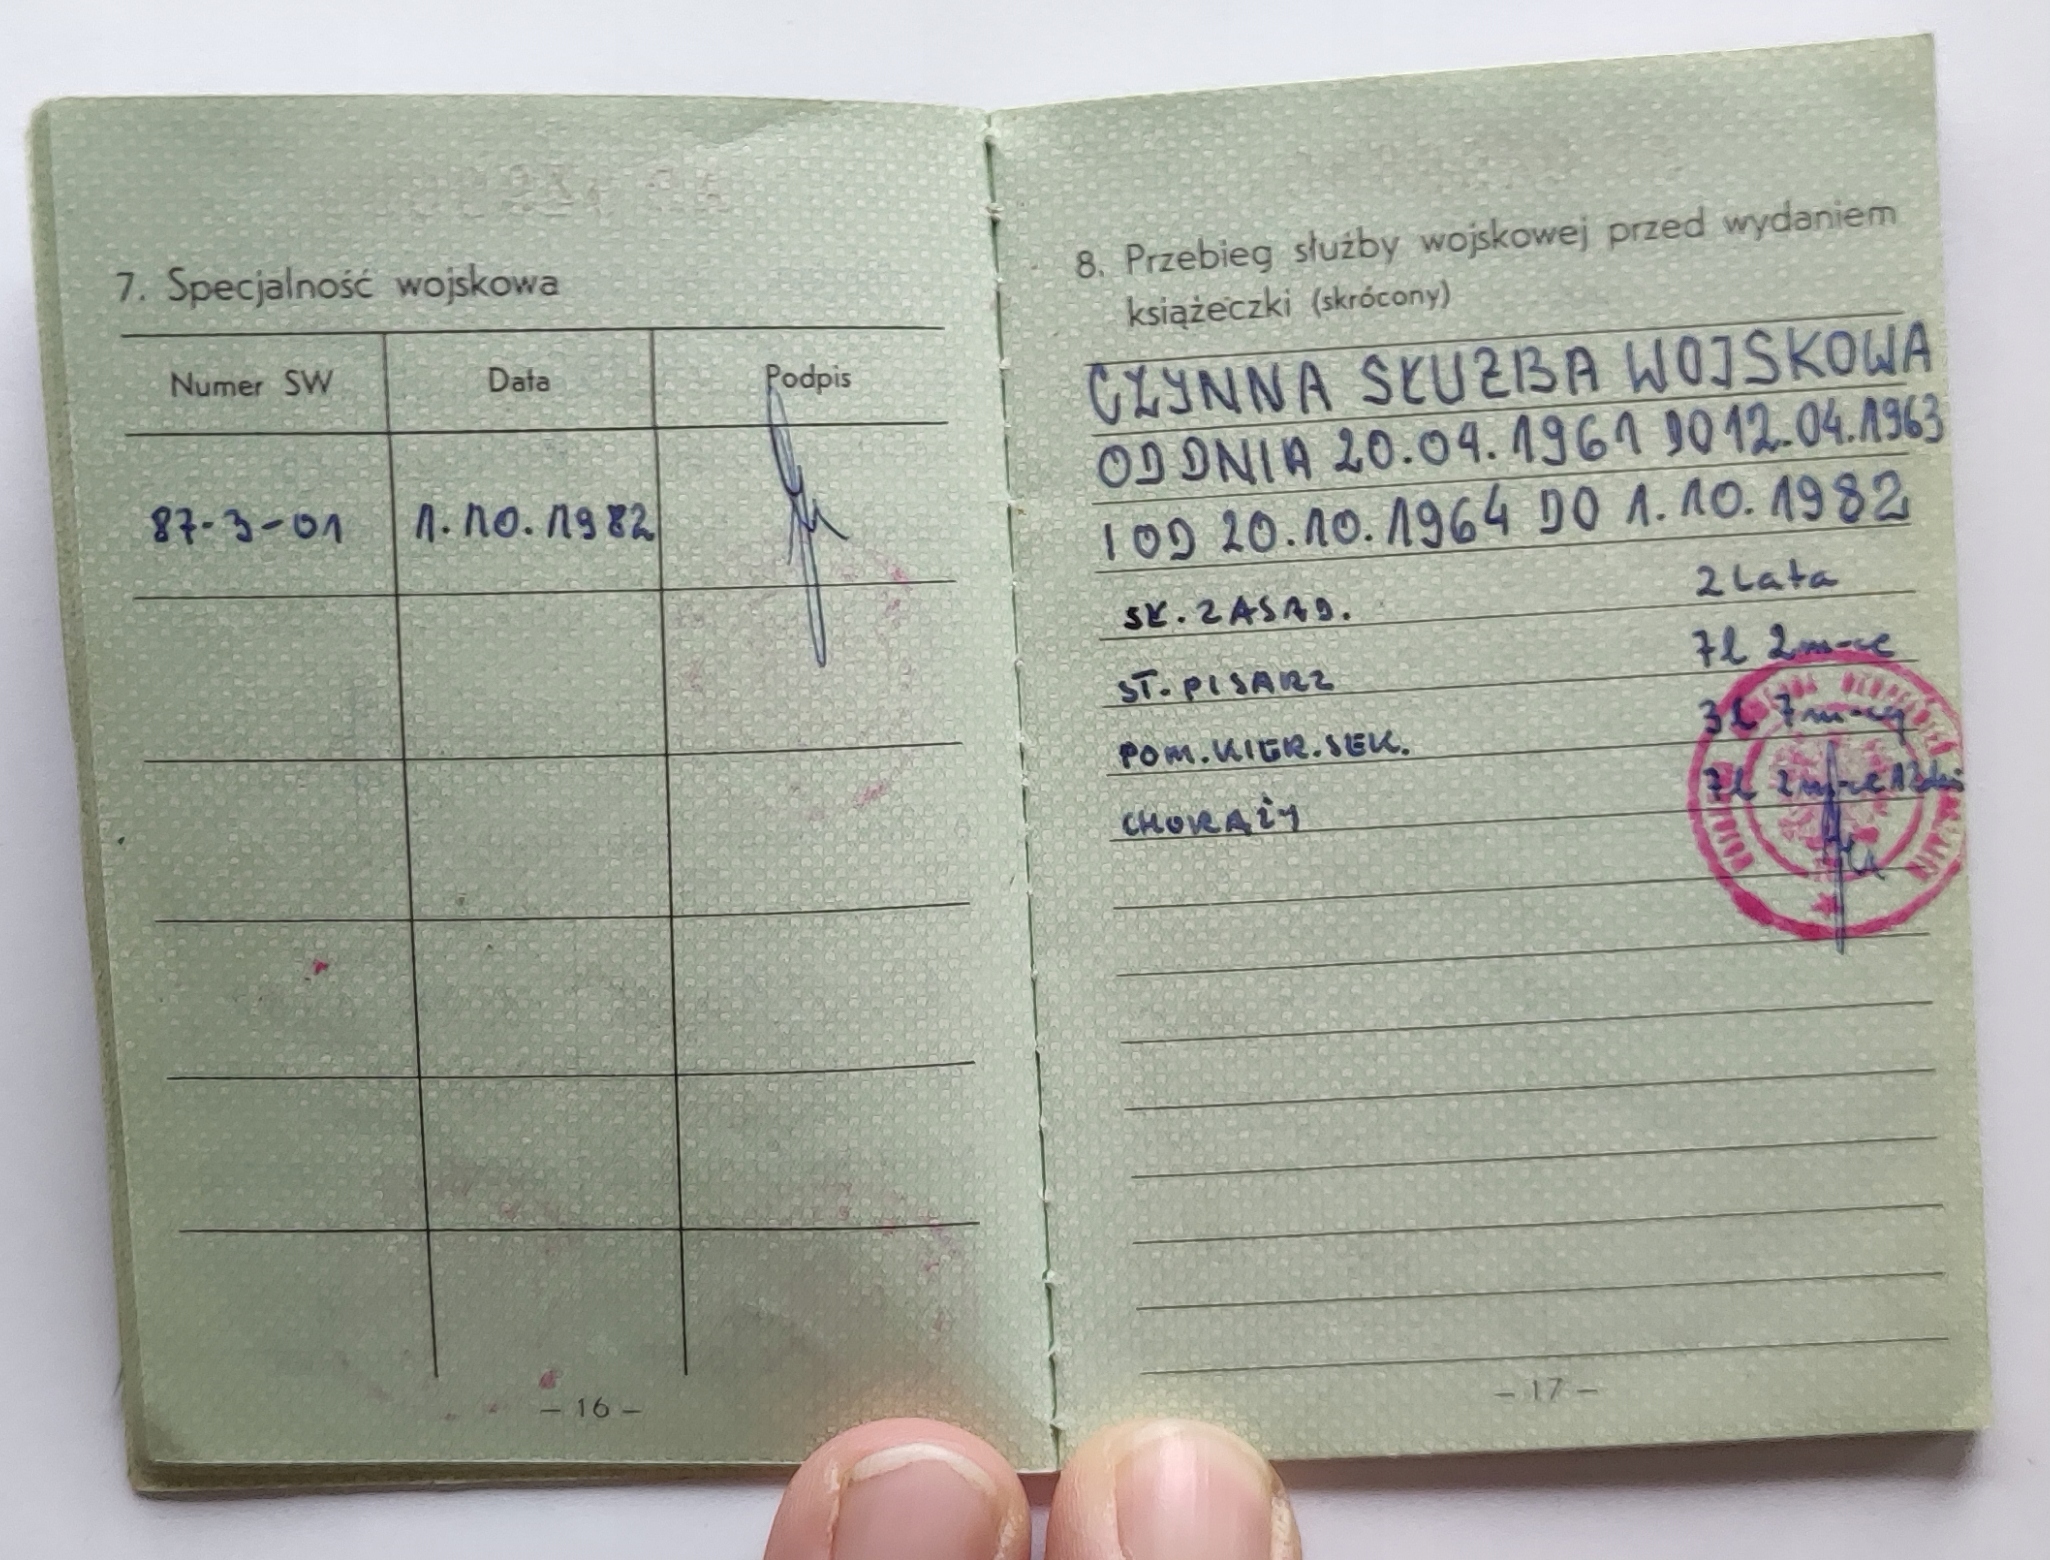 7. Specjalność wojskowa
Numer SW Data Podpis
87-3-01 1.10.1982
– 16 –
8. Przebieg służby wojskowej przed wydaniem
książeczki (skrócony)
CZYNNA SŁUŻBA WOJSKOWA
OD DNIA 20.04.1961 DO 12.04.1963
I OD 20.10.1964 DO 1.10.1982
SŁ. ZASAD. 2 lata
ST. PISARZ 7l 2 m-ce
POM. KIER. SEK. 3l 7 m-cy
CHORĄŻY 7l 2 m-ce 12 dni
– 17 –